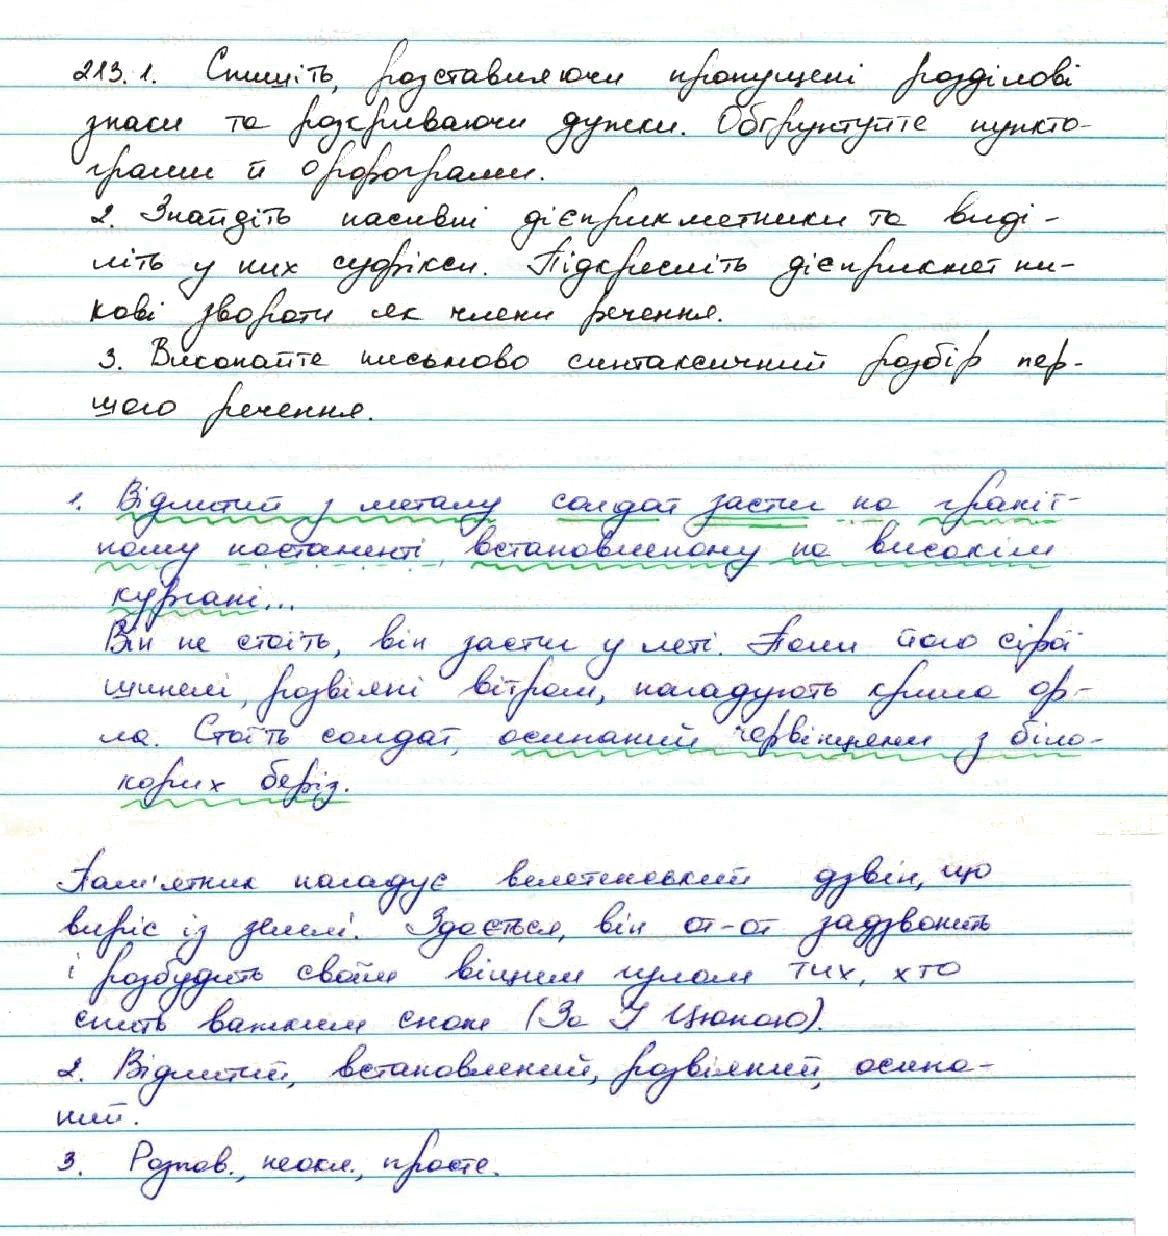 213.1. Спишіть, розставляючи пропущені розділові
знаки та розкриваючи дужки. Обґрунтуйте пункто-
грами й орфограми.
2. Знайдіть пасивні дієприкметники та виді-
літь у них суфікси. Підкресліть дієприкметни-
кові звороти як члени речення.
3. Виконайте письмово синтаксичний розбір пер-
шого речення.
1. Відлитий з металу солдат застиг на граніт-
ному постаменті, встановленому на високім
кургані...
Він не стоїть, він застиг у леті. Поли його сірої
шинелі, розвіяні вітром, нагадують крила ор-
ла. Стоїть солдат, осипаний червінцями з біло-
корих беріз.
Пам'ятник нагадує велетенський дзвін, що
виріс із землі. Здається, він от-от задзвонить
і розбудить своїм віщим гулом тих, хто
спить важким сном (За І Цюпою).
2. Відлитий, встановлений, розвіяний, осипа-
ний.
3. Розпов., неокл., просте.